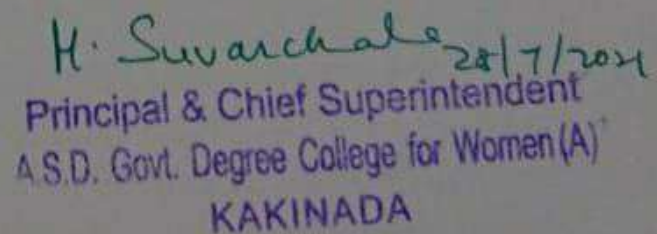 H. Suvarchala 28/7/2021
Principal & Chief Superintendent
A.S.D. Govt. Degree College for Women (A)
KAKINADA